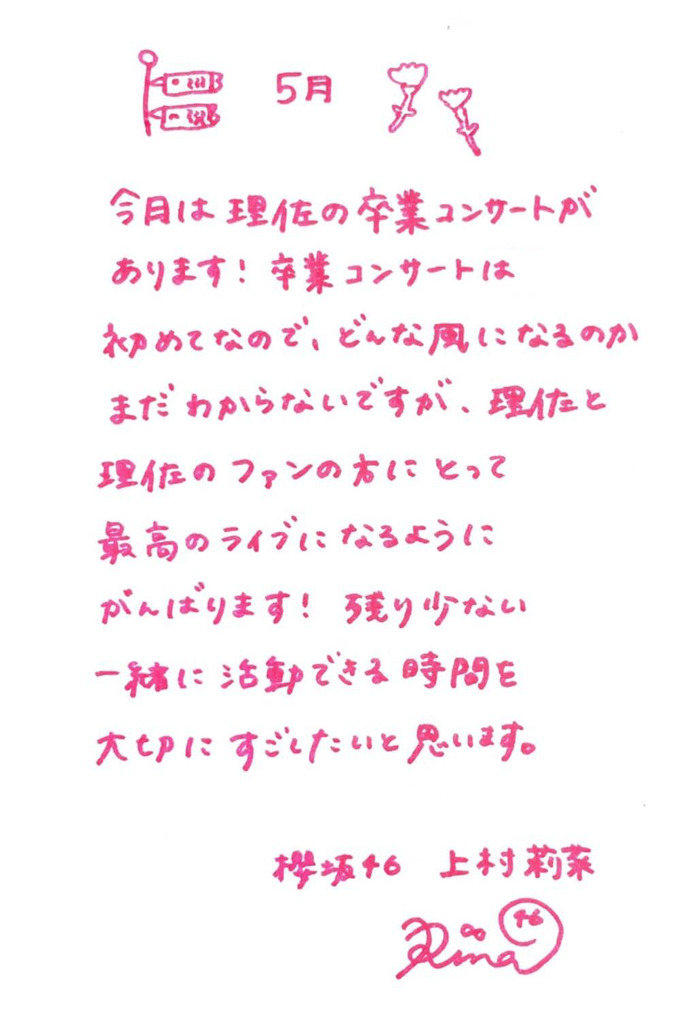 5月
今月は理佐の卒業コンサートが
あります！卒業コンサートは
初めてなので、どんな風になるのか
まだわからないですが、理佐と
理佐のファンの方にとって
最高のライブになるように
がんばります！残り少ない
一緒に活動できる時間を
大切にすごしたいと思います。
櫻坂46 上村莉菜
Rina 46